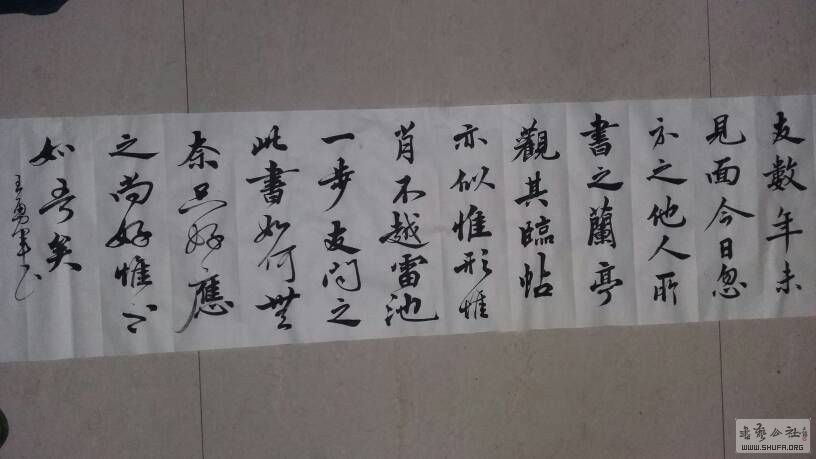 友数年未
見面今日忽
示之他人所
書之蘭亭
觀其臨帖
亦似惟形惟
肖不越雷池
一步友问之
此書如何無
奈只好應
之尚好惟
如吾矣
王勇軍
WWW.SHUFA.ORG